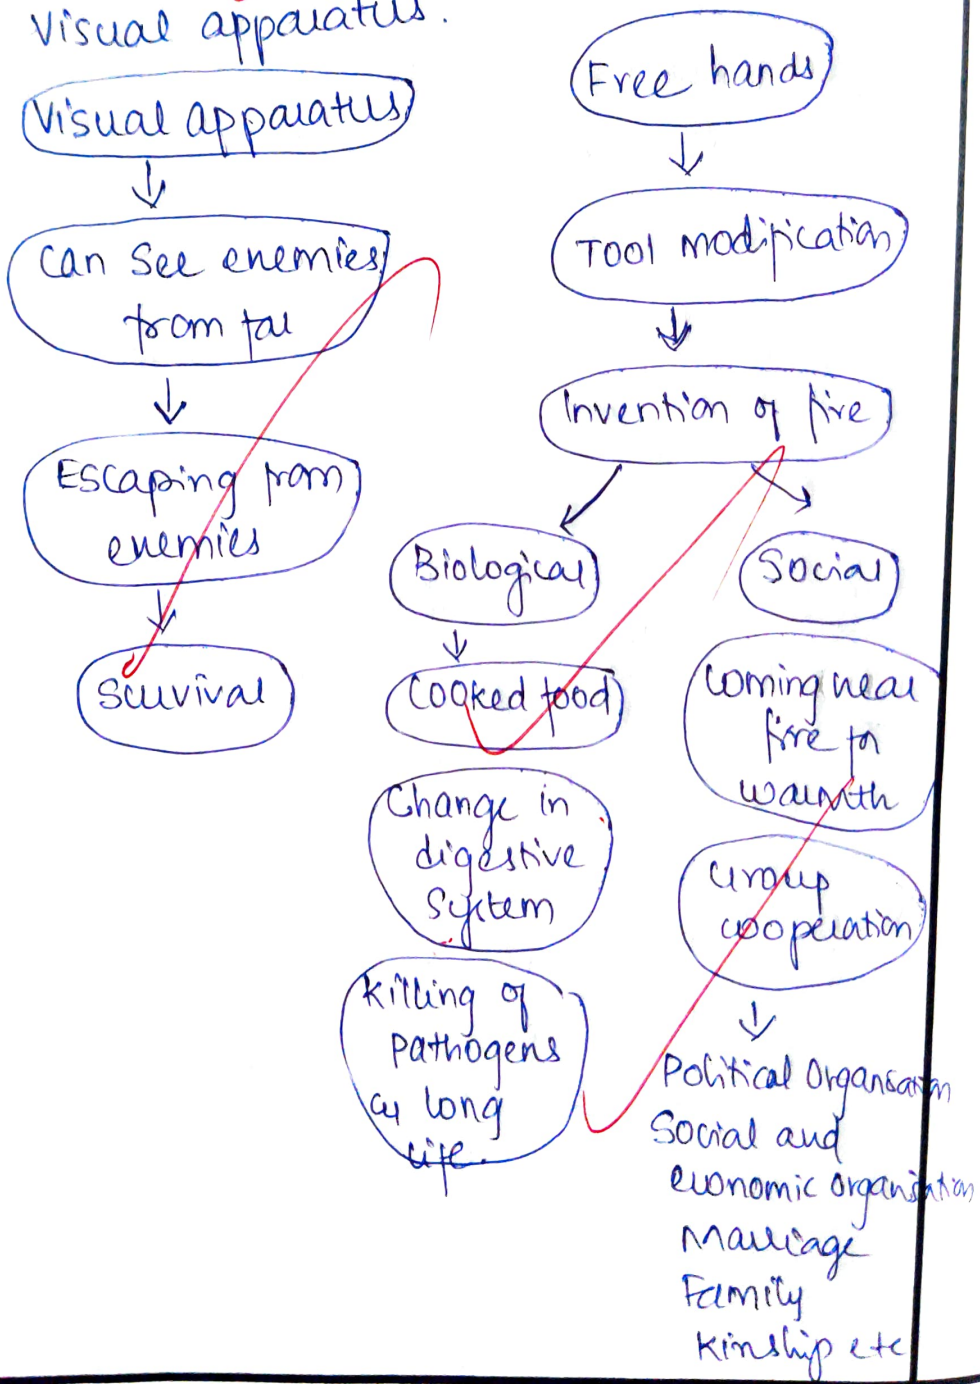 Visual apparatus.
Visual apparatus
can see enemies
from far
Escaping from
enemies
Survival
Free hands
Tool modification
Invention of fire
Biological
Cooked food
Change in
digestive
system
Killing of
pathogens
long
life.
Social
Coming near
fire for
warmth
Group
cooperation
Political Organisation
Social and
economic organisation
Marriage
Family
Kinship etc